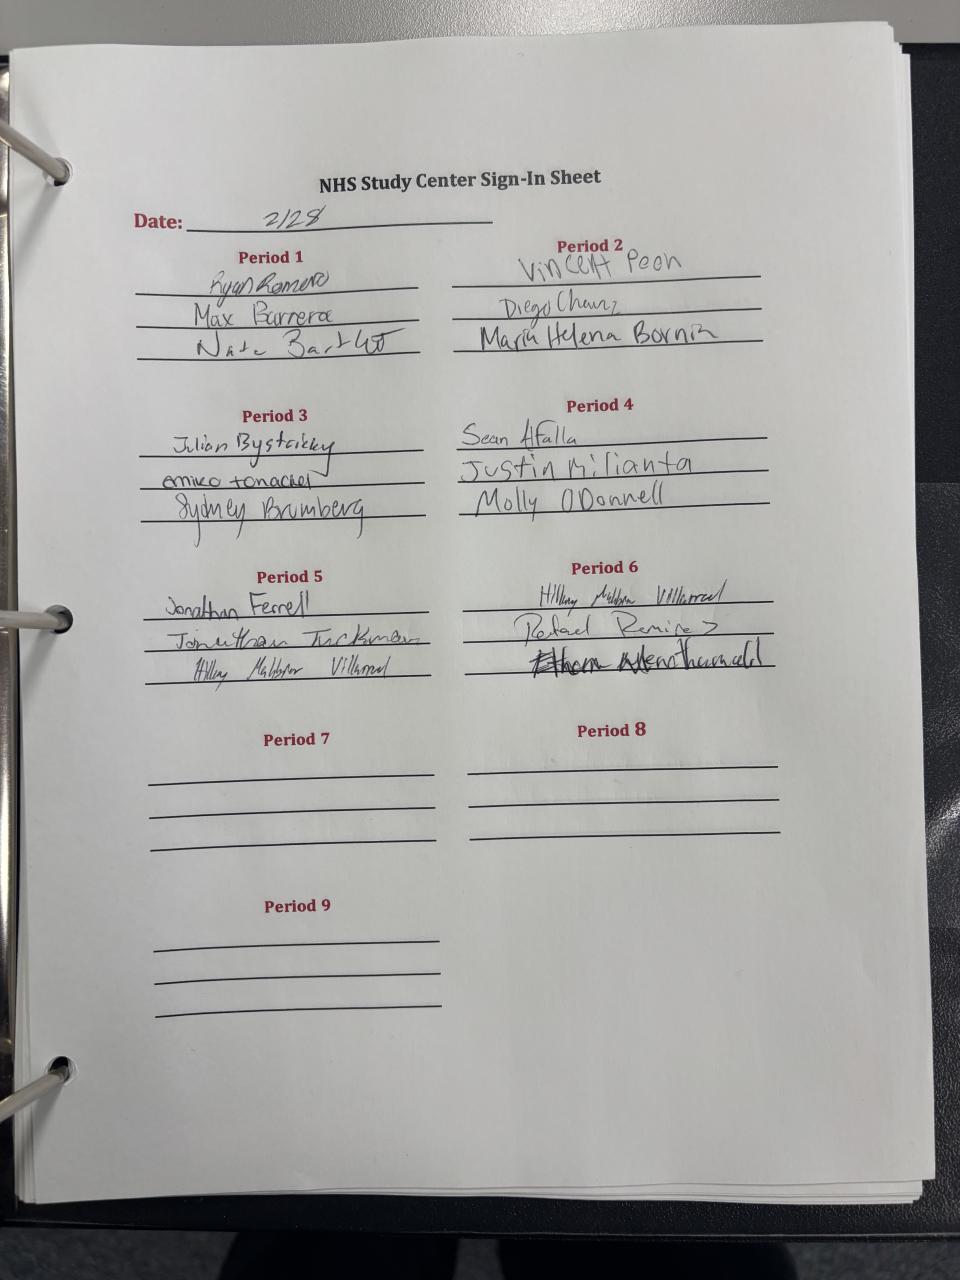 NHS Study Center Sign-In Sheet
Date: 2/28
Period 1
Ryan Romero
Max Barrera
Nate
Period 2
Vincent Peon
Diego
Maria Helena Bornin
Period 3
Julian Bystricky
emiko tonachel
Sydney Brumberg
Period 4
Sean Afalla
Justin Milianta
Molly ODonnell
Period 5
Jonathan Ferrell
Jonathan Tuckman
Hillary Villarreal
Period 6
Hillary Villarreal
Rafael Ramirez
Ethan
Period 7
Period 8
Period 9